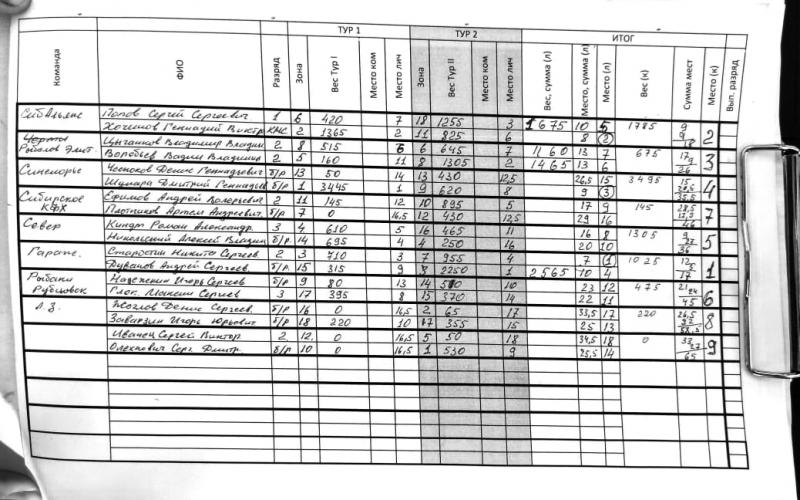 ТУР 1 ТУР 2 ИТОГ
Команда ФИО Разряд Зона Вес Тур I Место ком Место лич Зона Вес Тур II Место ком Место лич Вес, сумма (л) Место, сумма (л) Место (л) Вес (к) Сумма мест Место (к) Вып. разряд
Попов Сергей Сергеевич 1 6 420 7 18 1255 3 1675 10 5 1785 9 2
Геннадий КМС 2 1365 2 11 825 6 8 2 9 18
Цыганков Владимир Владим 2 8 515 6 6 645 7 1160 13 7 675 17 3
Рыболов Элит. Воробьев Вадим Владимир 2 5 160 11 8 1305 2 1465 13 6 9 26
Синеморье Чесноков Денис Геннадьевич б/р 13 50 14 13 430 12,5 26,5 15 3495 15 4
Шулара Дмитрий Геннадье б/р 1 3445 1 9 620 8 9 3 20,5 35,5
Сибирское Ефимов Андрей Валерьевич 2 11 145 12 10 895 5 17 9 145 28,5 7
КФХ Плотников Артем Андреевич. б/р 7 0 16,5 12 430 12,5 29 16 17,5 46
Север Киндт Роман Александр. 3 4 610 5 16 465 11 16 8 1305 9 5
Никольский Алексей Владим б/р 14 695 4 4 250 16 20 10 27 36
Гараж. Старостин Никита Сергеев. 2 3 710 3 7 955 4 7 1 1025 12 1
Дуванов Андрей Сергеев. б/р 15 315 9 8 2250 1 2565 10 4 5 17
Рыбаки Надежкин Игорь Сергеев б/р 9 80 13 14 10 23 12 475 21 6
Рубцовск Глок. Максим Сергеев 3 17 395 8 15 370 14 22 11 24 45
Л.З. Жеглов Денис Сергеев. б/р 16 0 16,5 2 65 17 33,5 17 220 26,5 8
Заварзин Игорь Юрьевич б/р 18 220 10 17 355 15 25 13 32 58,5
Иванец Сергей Виктор. 2 12, 0 16,5 5 50 18 34,5 18 0 33 9
Олехнович Серг. Дмитр. б/р 10 0 16,5 1 530 9 25,5 14 65